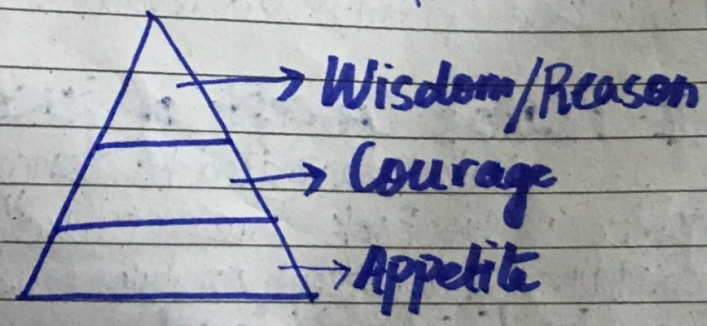 Wisdom/Reason
Courage
Appetite